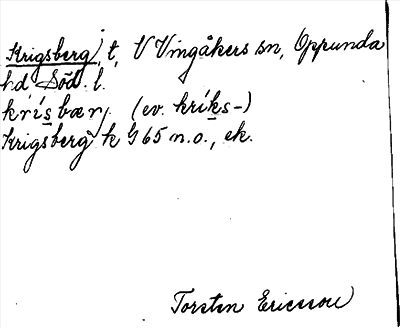 Krigsberg, t, V Vingåkers sn, Oppunda
hd Söd. l.
krisbærj (ev. kriks-)
Krigsberg k G 65 n.o., ek.
Torsten Ericsson